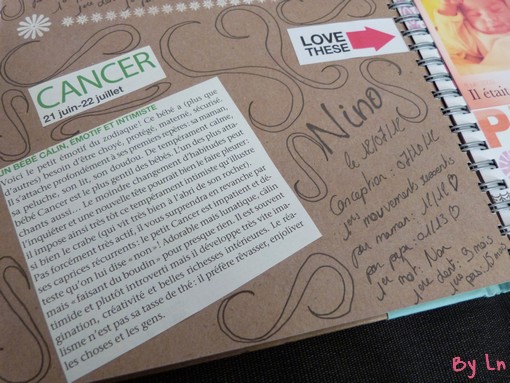 CANCER
21 juin-22 juillet
LOVE
THESE
UN BÉBÉ CÂLIN, ÉMOTIF ET INTIMISTE
Voici le petit émotif du zodiaque! Ce bébé a (plus que
d'autres) besoin d'être choyé, protégé, materné, sécurisé.
Il s'attache profondément à ses premiers repères, sa maman,
sa peluche, son lit, son doudou. De tempérament calme,
bébé Cancer est le plus gentil des bébés. L'un des plus atta-
chants aussi... Le moindre changement d'habitudes peut
l'inquiéter et une nouvelle tête pourrait bien le faire pleurer:
il impose ainsi très tôt ce tempérament intimiste qu'illustre
si bien le crabe (qui vit très bien à l'abri de son rocher).
Pas forcément très actif, il vous surprendra en revanche par
ses caprices récurrents: le petit Cancer est impatient et dé-
teste qu'on lui dise « non »! Adorable mais lunatique, câlin
mais « faisant du boudin » pour presque rien, il est souvent
timide et plutôt introverti mais il développe très vite ima-
gination, créativité et belles richesses intérieures. Le réa-
lisme n'est pas sa tasse de thé: il préfère rêvasser, enjoliver
les choses et les gens.
Nino
Conception :
mouvements ressentis
par maman :
par papa :
1er mot: Non
1ère dent: 9 mois
Il était
By Ln